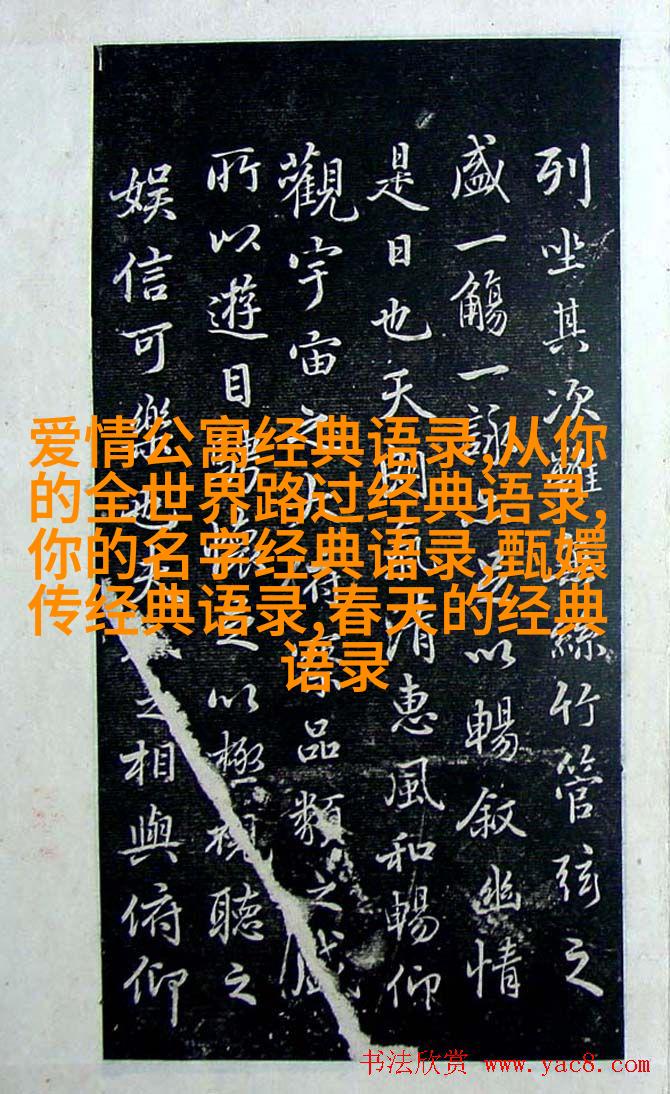 列坐其次雖絲竹管弦之
盛一觴一詠以暢叙幽情
是日也天清惠風和暢仰
觀宇宙之品類之盛
所以遊目以極視聽之
娱信可樂也之相與俯仰
爱情公寓经典语录,从你
的全世界路过经典语录,
你的名字经典语录,甄嬛
传经典语录,春天的经典
语录
书法欣赏 www.yac8.com